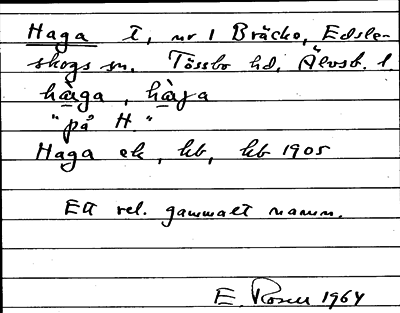 Haga t, nr 1 Bräcke, Edsle-
skogs sn. Tössbo hd, Älvsb. l.
hàga, hàga
"på H."
Haga ek, kb, kb 1905
Ett rel. gammalt namn.
E. Rosell 1964